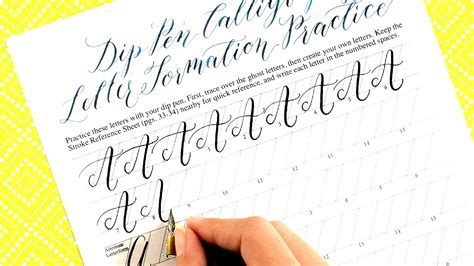 Dip Pen Callig
Letter Formation Practice
Practice these letters with your dip pen. First, trace over the ghost letters, then create your own letters. Keep the
Stroke Reference Sheet (pgs. 33-34) nearby for quick reference, and write each letter in the numbered spaces.
A A A A A A A A
A A
Alternate
Letterform
a